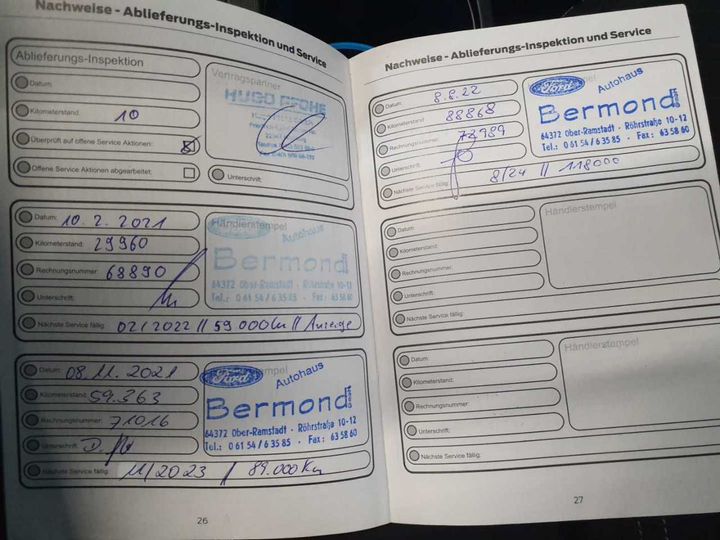 Nachweise - Ablieferungs-Inspektion und Service
Ablieferungs-Inspektion
Datum:
Kilometerstand: 10
Überprüft auf offene Service Aktionen:
Offene Service Aktionen abgearbeitet:
Vertragspartner
HUGO GROHE
Unterschrift:
Datum: 10. 2. 2021
Kilometerstand: 29960
Rechnungsnummer: 68890
Unterschrift:
Nächste Service fällig: 02/2022 // 59 000 km // Anzeige
Händlerstempel
Autohaus
Bermond GmbH
64372 Ober-Ramstadt · Röhrstraße 10-12
Tel.: 0 61 54 / 6 35 85 · Fax: 63 58 60
Datum: 08. 11. 2021
Kilometerstand: 59.363
Rechnungsnummer: 71016
Unterschrift:
Nächste Service fällig: 11/2023 / 89.000 Km
Ford
Autohaus
Bermond GmbH
64372 Ober-Ramstadt · Röhrstraße 10-12
Tel.: 0 61 54 / 6 35 85 · Fax: 63 58 60
26
Nachweise - Ablieferungs-Inspektion und Service
Datum: 8.8.22
Kilometerstand: 88868
Rechnungsnummer: 73989
Unterschrift:
Nächste Service fällig: 8/24 // 118000
Ford
Autohaus
Bermond GmbH
64372 Ober-Ramstadt · Röhrstraße 10-12
Tel.: 0 61 54 / 6 35 85 · Fax: 63 58 60
Datum:
Kilometerstand:
Rechnungsnummer:
Unterschrift:
Nächste Service fällig:
Händlerstempel
Datum:
Kilometerstand:
Rechnungsnummer:
Unterschrift:
Nächste Service fällig:
Händlerstempel
27